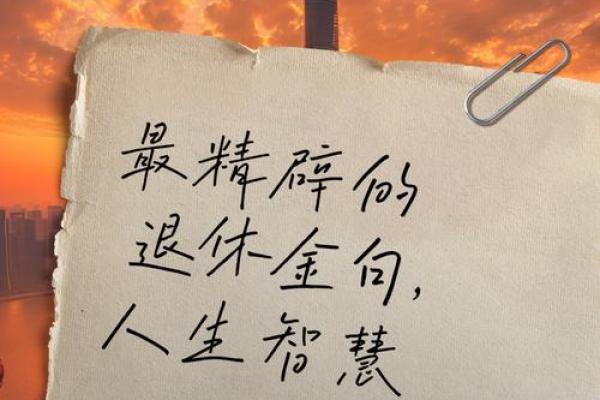 最精辟的
退休金句,
人生智慧